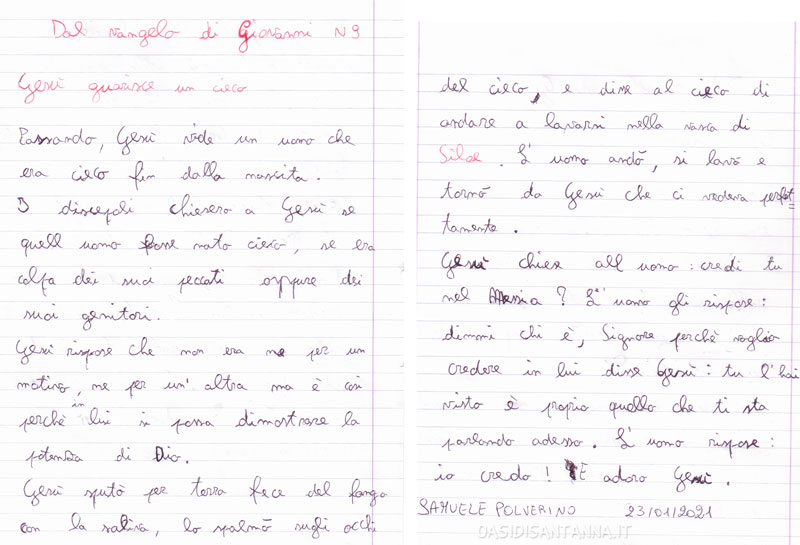 Dal vangelo di Giovanni N9
Gesù guarisce un cieco
Passando, Gesù vide un uomo che
era cieco fin dalla nascita.
I discepoli chiesero a Gesù se
quell uomo fosse nato cieco, se era
colpa dei suoi peccati oppure dei
suoi genitori.
Gesù rispose che non era ne per un
motivo, ne per un' altra ma è così
perchè in lui si possa dimostrare la
potenza di Dio.
Gesù sputò per terra fece del fango
con la saliva, lo spalmò sugli occhi
del cieco, e disse al cieco di
andare a lavarsi nella vasca di
Siloe. L' uomo andò, si lavò e
tornò da Gesù che ci vedeva perfet
tamente.
Gesù chiese all uomo: credi tu
nel Messia? L' uomo gli rispose:
dimmi chi è, Signore perchè voglio
credere in lui disse Gesù: tu l'hai
visto è proprio quello che ti sta
parlando adesso. L' uomo rispose:
io credo! E adoro Gesù.
SAMUELE POLVERINO 23/01/2021
OASIDISANTANNA.IT